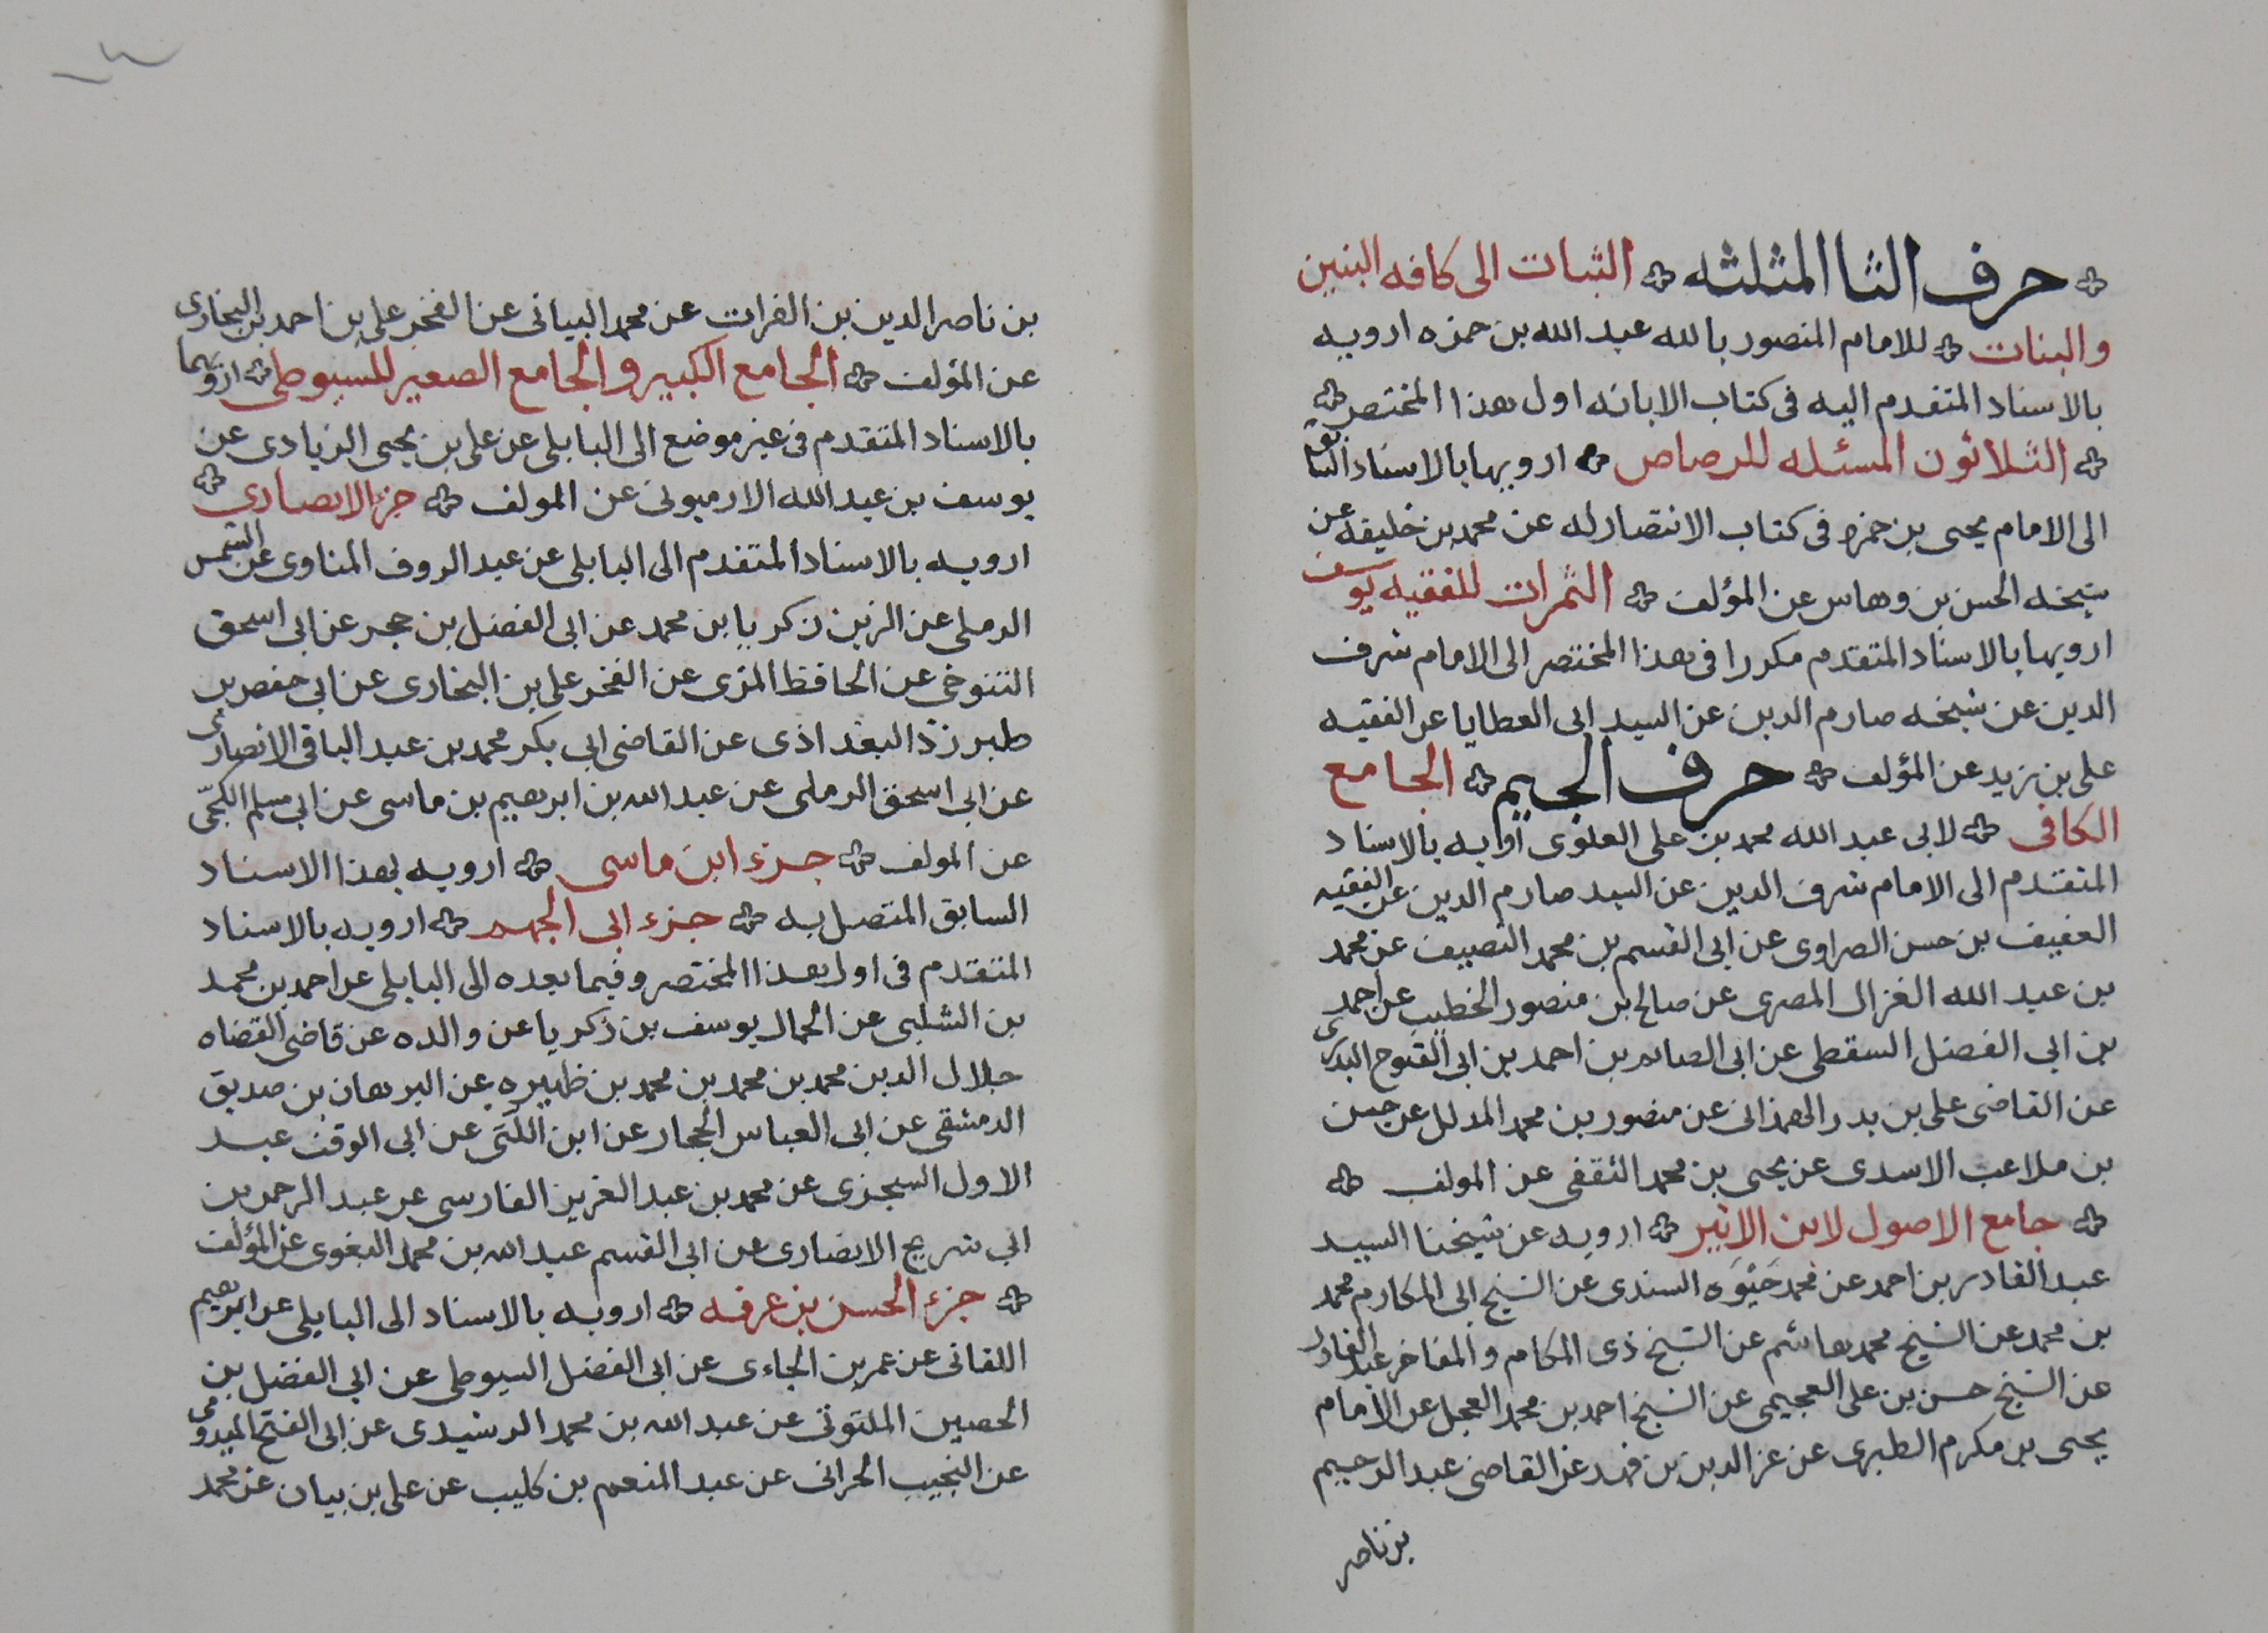 حرف الثا المثلثه الثبات الى كافه البنين
والبنات للامام المنصور بالله عبد الله بن حمزه ارويه
بالاسناد المتقدم اليه فى كتاب الابانه اول هذا المختصر
الثلاثون المسئله للرصاص ارويها بالاسناد السابق
الى الامام يحيى بن حمزه فى كتاب الانتصار له عن محمد بن خليفه عن
شيخه الحسن بن وهاس عن المؤلف الثمرات للفقيه يوسف
ارويها بالاسناد المتقدم مكررا فى هذا المختصر الى الامام شرف
الدين عن شيخه صارم الدين عن السيد ابى العطايا عن الفقيه
على بن زيد عن المؤلف حرف الجيم الجامع
الكافى لابى عبد الله محمد بن على العلوى ارويه بالاسناد
المتقدم الى الامام شرف الدين عن السيد صارم الدين عن الفقيه
العفيف بن حسن الصراوى عن ابى القسم بن محمد النصيف عن محمد
بن عبد الله الغزال المصرى عن صالح بن منصور الخطيب عن احمد
بن ابى الفضل السقطى عن ابى الصايم بن احمد بن ابى الفتوح البدرى
عن القاضى على بن بدر الهمذانى عن منصور بن محمد المدلل عن حسن
بن ملاعب الاسدى عن يحيى بن محمد الثقفى عن المولف
جامع الاصول لابن الاثير ارويه عن شيخنا السيد
عبد القادر بن احمد عن محمد حَيْوَه السندى عن الشيخ ابى المكارم محمد
بن محمد عن الشيخ محمد هاشم عن الشيخ ذى المكام والمفاخر عبد القادر
عن الشيخ حسن بن على العجيمى عن الشيخ احمد بن محمد العجل عن الامام
يحيى بن مكرم الطبرى عن عز الدين بن فهد عن القاضى عبد الرحيم
بن ناصر
بن ناصر الدين بن الفرات عن محمد البيانى عن الفخر على بن احمد بن البخارى
عن المؤلف الجامع الكبير والجامع الصغير للسيوطى ارويهما
بالاسناد المتقدم فى غير موضع الى البابلى عن على بن يحيى الزيادى عن
يوسف بن عبد الله الارميونى عن المولف جزء الانصارى
ارويه بالاسناد المتقدم الى البابلى عن عبد الروف المناوى عن الشمس
الرملى عن الزين زكريا بن محمد عن ابى الفضل بن حجر عن ابى اسحق
التنوخى عن الحافظ المزى عن الفخر على بن البخارى عن ابى حفص بن
طبرزذ البغداذى عن القاضى ابى بكر محمد بن عبد الباقى الانصارى
عن ابى اسحق الرملى عن عبد الله بن ابرهيم بن ماسى عن ابى مسلم الكجّى
عن المولف جزء ابن ماسى ارويه بهذا الاسناد
السابق المتصل به جزء ابى الجهم ارويه بالاسناد
المتقدم فى اول هذا المختصر وفيما بعده الى البابلى عن احمد بن محمد
بن الشلبى عن الجمال يوسف بن زكريا عن والده عن قاضى القضاه
جلال الدين محمد بن محمد بن محمد بن ظهيره عن البرهان بن صديق
الدمشقى عن ابى العباس الحجار عن ابن اللَّتى عن ابى الوقت عبد
الاول السجزى عن محمد بن عبد العزيز الفارسى عن عبد الرحمن بن
ابى شريح الانصارى عن ابى القسم عبد الله بن محمد البغوى عن المؤلف
جزء الحسن بن عرفه ارويه بالاسناد الى البابلى عن ابرهيم
اللقانى عن عمر بن الجاءى عن ابى الفضل السيوطى عن ابى الفضل بن
الحصين الملتوتى عن عبد الله بن محمد الرشيدى عن ابى الفتح الميدومى
عن النجيب الحرانى عن عبد المنعم بن كليب عن على بن بيان عن محمد